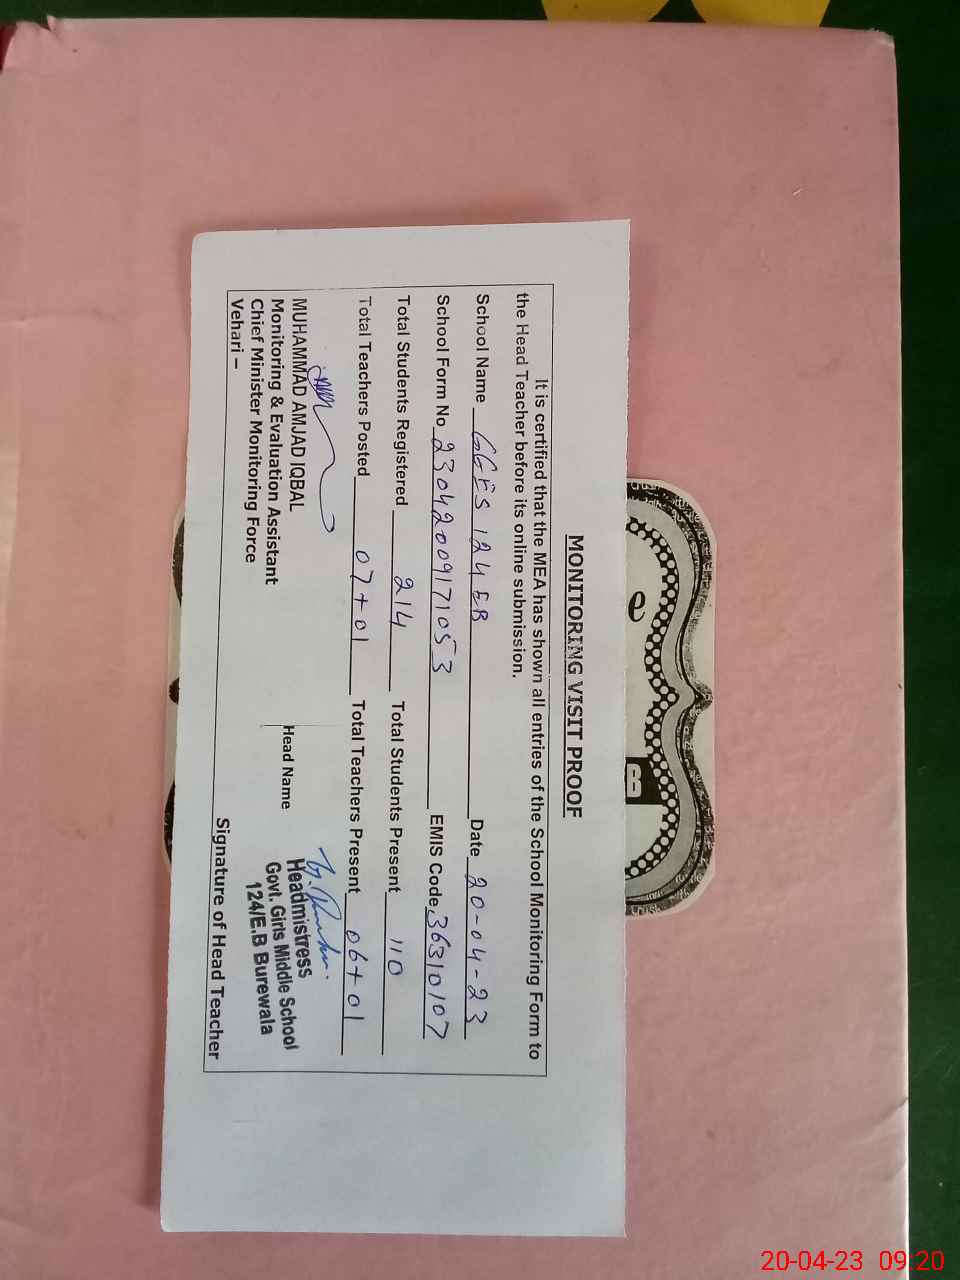 MONITORING VISIT PROOF
It is certified that the MEA has shown all entries of the School Monitoring Form to
the Head Teacher before its online submission.
School Name GGES 124 EB Date 20-04-23
School Form No 23042009171053 EMIS Code 36310107
Total Students Registered 214 Total Students Present 110
Total Teachers Posted 07+01 Total Teachers Present 06+01
MUHAMMAD AMJAD IQBAL
Monitoring & Evaluation Assistant
Chief Minister Monitoring Force
Vehari –
Head Name
Headmistress
Govt. Girls Middle School
124/E.B Burewala
Signature of Head Teacher
20-04-23 09:20